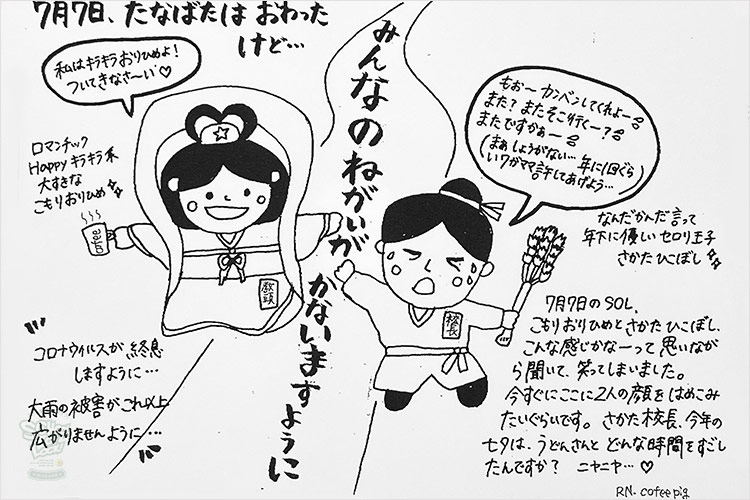 7月7日、たなばたは おわった
けど…
私はキラキラおりひめよ!
ついてきなさ〜い♡
ロマンチック
Happyキラキラ系
大すきな
こもりおりひめ
みんなのねがいが
かないますように
もぉ〜カンベンしてくれよ〜
また?またそこ行く〜?
またですかぁ〜
(まぁしょうがない…年に1回ぐら
いワガママ許してあげよう…)
なんだかんだ言って
年下に優しいセロリ王子
さかたひこぼし
教頭
校長
コロナウイルスが終息
しますように…
大雨の被害がこれ以上
広がりませんように…
7月7日のSOL、
こもりおりひめとさかたひこぼし、
こんな感じかなーって思いなが
ら聞いて、笑ってしまいました。
今すぐにここに2人の顔をはめこみ
たいぐらいです。さかた校長、今年の
七夕は、うどんさんとどんな時間をすごし
たんですか? ニヤニヤ…♡
RN. cofee pig